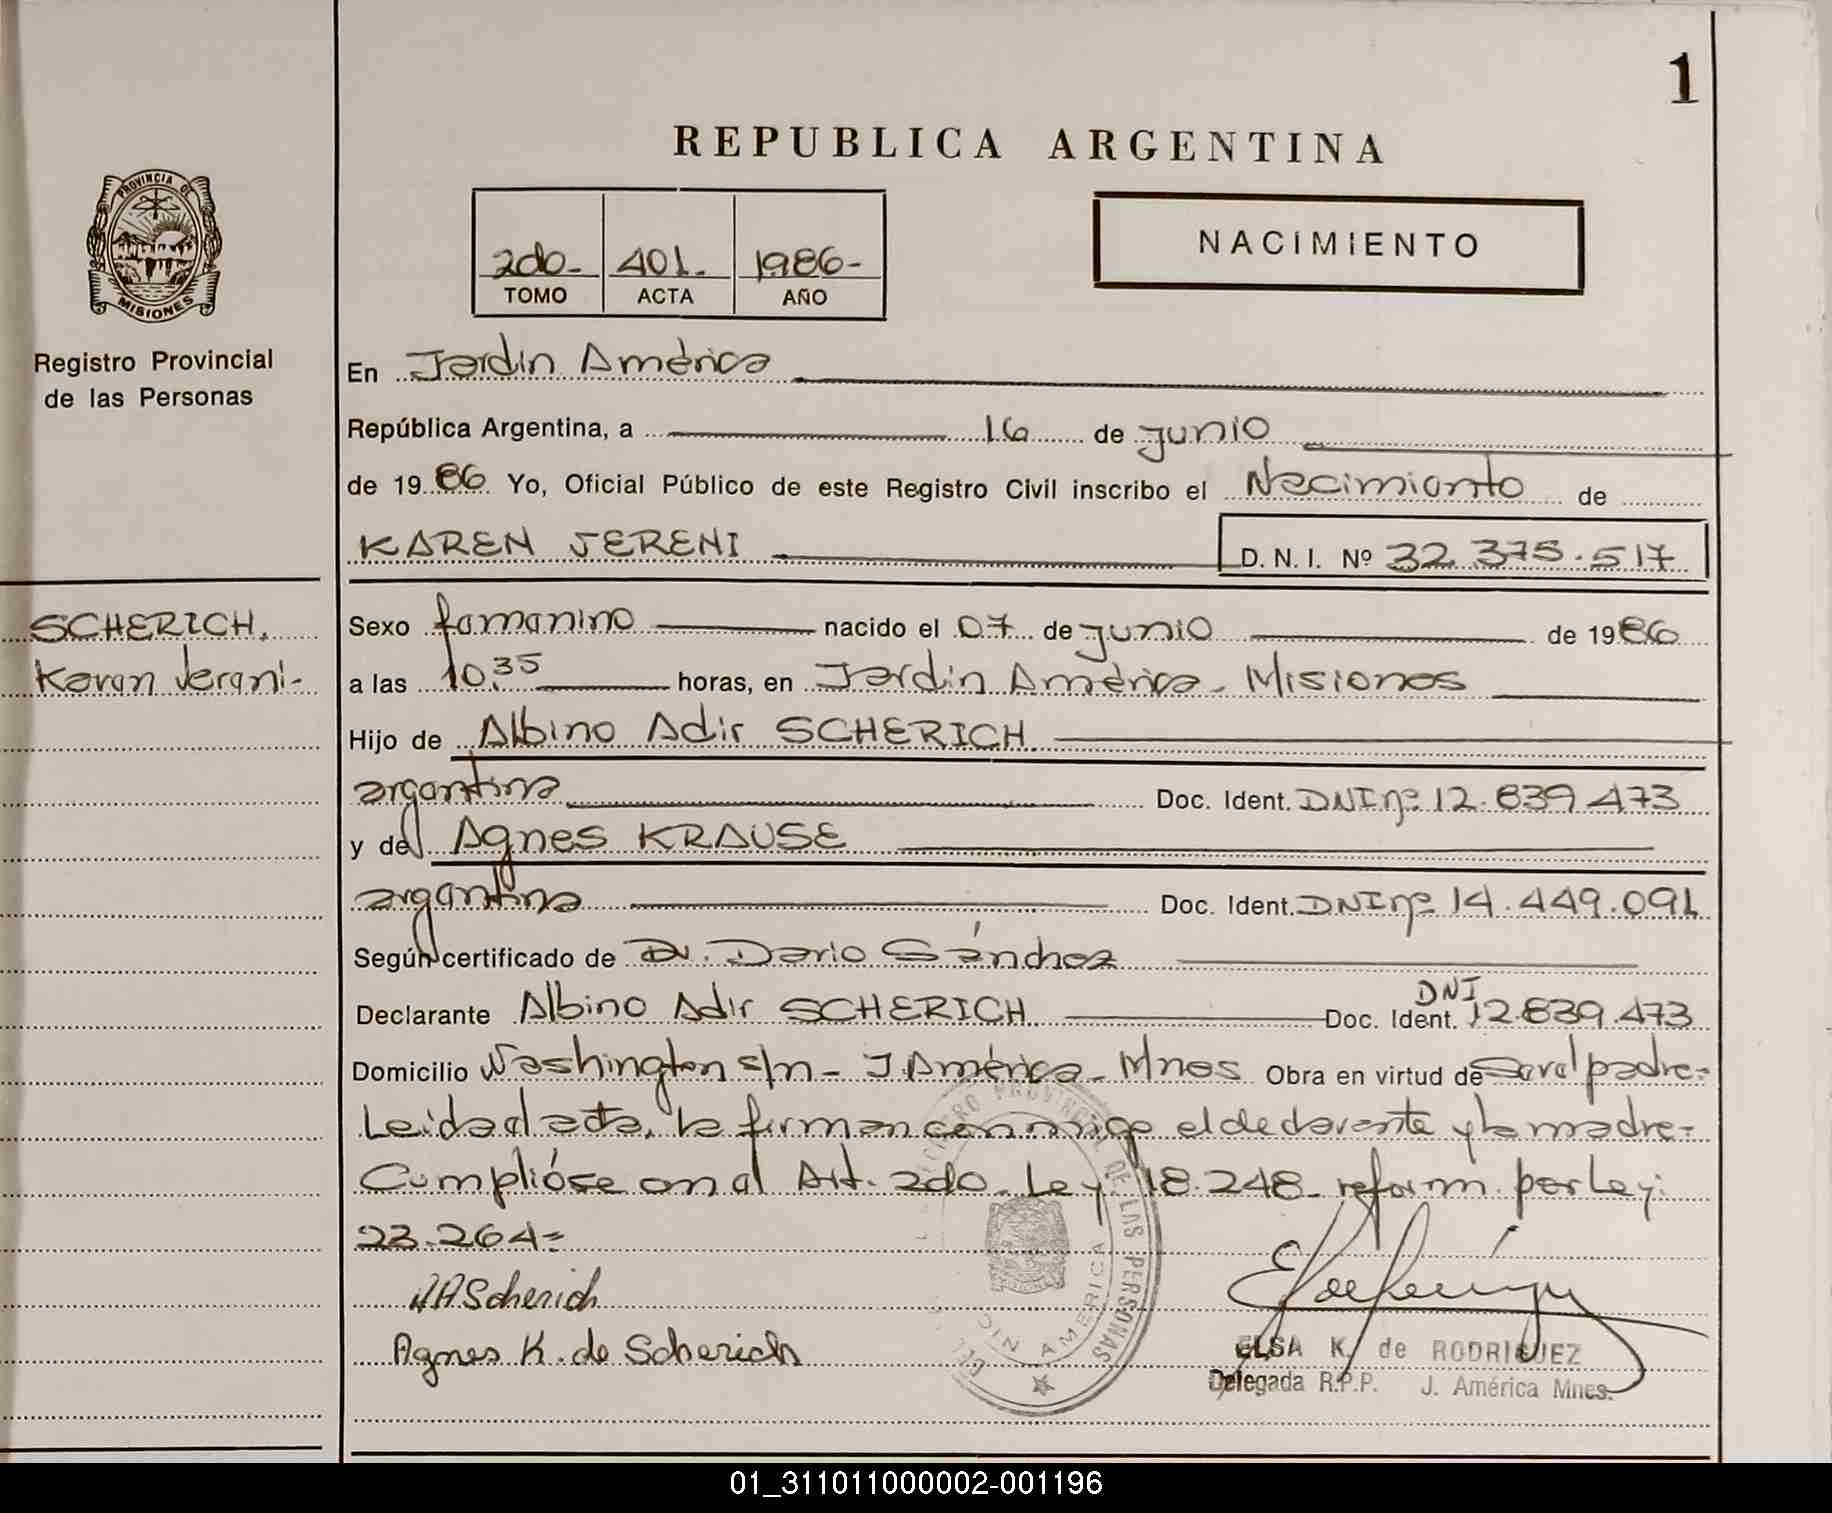 1
REPUBLICA ARGENTINA
PROVINCIA DE
MISIONES
Registro Provincial
de las Personas
2do-
401.
1986-
TOMO
ACTA
AÑO
NACIMIENTO
En Jardín América
República Argentina, a 16 de junio
de 1986 Yo, Oficial Público de este Registro Civil inscribo el Nacimiento de
KAREN JERENI
D. N. I. Nº 32.375.517
SCHERICH,
Karen Jereni-
Sexo femenino nacido el 07 de junio de 1986
a las 10.35 horas, en Jardín América - Misiones
Hijo de Albino Adir SCHERICH
argentina Doc. Ident. DNI nº 12.839.473
y de Agnes KRAUSE
argentina Doc. Ident. DNI nº 14.449.091
Según certificado de Dr. Dario Sánchez
Declarante Albino Adir SCHERICH Doc. Ident. DNI 12.839.473
Domicilio Washington s/n - J. América - Mnes Obra en virtud de ser el padre-
Leída el acta, la firman conmigo el declarante y la madre-
Cumplióse en el Art. 2do. Ley 18.248- reform. por Ley:
23.264=
AAScherich
Agnes K. de Scherich
REGISTRO PROVINCIAL DE LAS PERSONAS
AMERICA
ELSA K. de RODRIGUEZ
Delegada R.P.P. J. América Mnes.
01_311011000002-001196